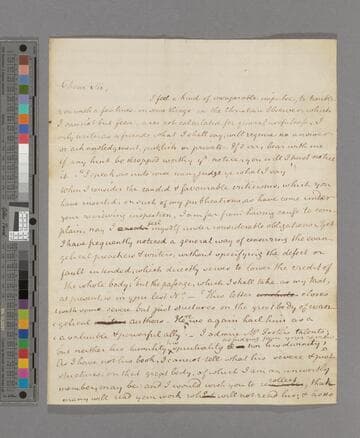 Dear Sir,
I feel a kind of irresistible impulse, to trouble
you with a few lines, on some things in the Christian Observer, which
I cannot but fear, are not calculated for general usefulness. I
only write as a friend: what I shall say, will require no answer
or acknowledgement, publick or private. If Sir, bear with me
if any hint be dropped worthy yr notice, you will I trust notice
it. "I speak as unto wise men; judge ye what I say"
When I consider the candid & favourable criticisms, which you
have inserted, on such of my publications, as have come under
your reviewing inspection, I am far from having cause to com-
plain; nay I feel myself under considerable obligations. Yet
I have frequently noticed a general way of censuring the evan-
gelical preachers & writers, without specifying the defect or
fault intended; which directly serves to lower the credit of
the whole body: but the passage, which I shall take, as my text,
at present, is in your last No. — This letter closes
with some severe but just strictures on the great body of evan-
gelical authors. Here we again hail him as a
valuable & powerful ally. — I admire Mr Foster's talents;
but neither his humility, spirituality nor his divinity;
As I have not his book, I cannot tell what his severe & just
strictures, on that great body, of which I am an unworthy
member, may be: and I would wish you to recollect, that
many will read your work, who will not read his; & as so